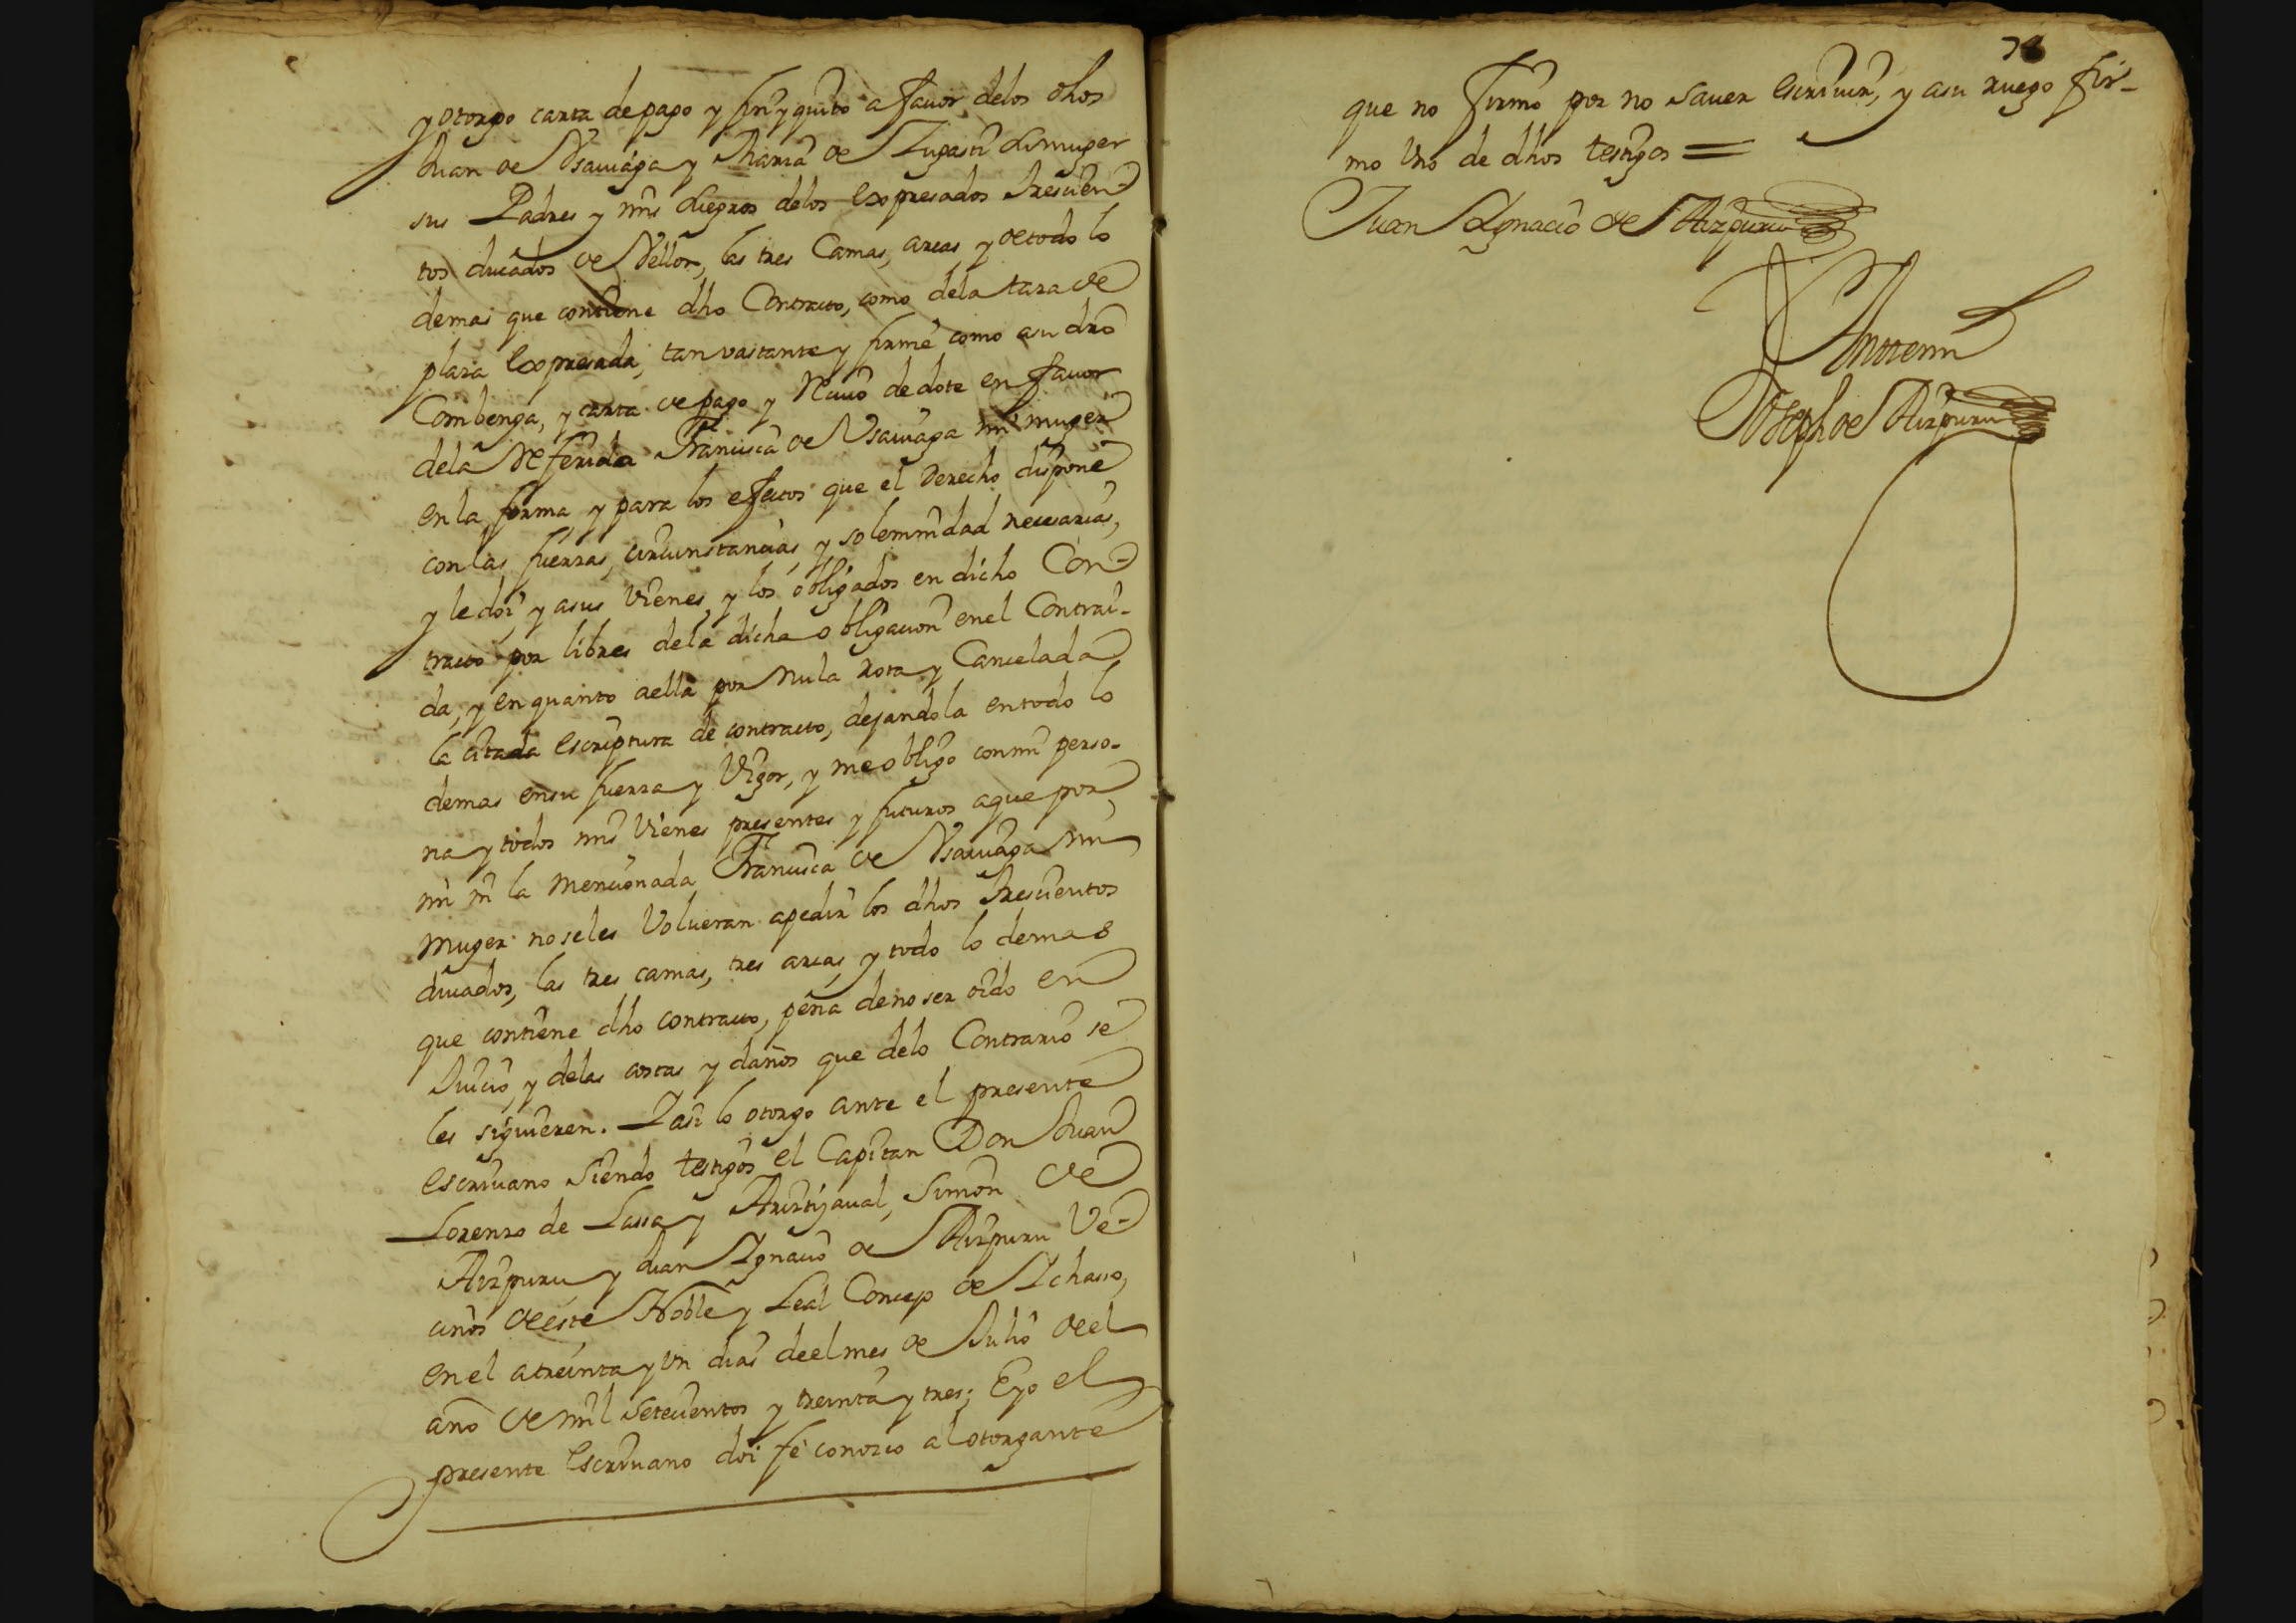 y otorgo carta de pago y fin y quito a favor delos dhos
Juan de Vsauiaga y Maria de Zugasti su muger
sus Padres y mis suegros delos expresados trescien-
tos ducados de Vellon, las tres Camas, arcas, y de todo lo
demas que contiene dho Contracto, como dela tara de
plara expresada, tan vastante y firme como a su dro
Combenga, y carta de pago y Reciuo de dote en favor
dela Referida Francisca de Vsauiaga mi muger
en la forma y para los efectos que el derecho dispone
con las fuerzas, circunstancias, y solemnidad necesarias,
y le doi, y a sus vienes, y los obligados en dicho Con-
tracto por libres dela dicha obligacion en el Contrai-
da, y en quanto a ella por nula rota y Cancelada
la citada escriptura de contracto, dejandola en todo lo
demas en su fuerza y Vigor, y me obligo con mi perso-
na y todos mis vienes presentes y futuros a que por
mi ni la mencionada Francisca de Vsauiaga mi
muger no seles Volueran a pedir los dhos trescientos
ducados, las tres camas, tres arcas, y todo lo demas
que contiene dho contracto, pena de no ser oido en
Juicio, y delas costas y daños que delo Contrario se
les siguieren. Y asi lo otorgo ante el presente
escriuano siendo testigos el Capitan Don Juan
Lorenzo de Lassa y Aristijaual, Simon de
Aizpuru y Juan Ignacio de Aizpuru Ve-
cinos de este Noble y Leal Concejo de Ichaso,
en el a treinta y un dias de el mes de Julio de el
año de mil setecientos y treinta y tres; E yo el
presente escriuano doi fe conozco al otorgante
que no firmo por no sauer escriuir, y a su ruego fir-
mo Uno de dhos testigos =
Juan Ignacio de Aizpuru
Ante mi
Joseph de Aizpuru